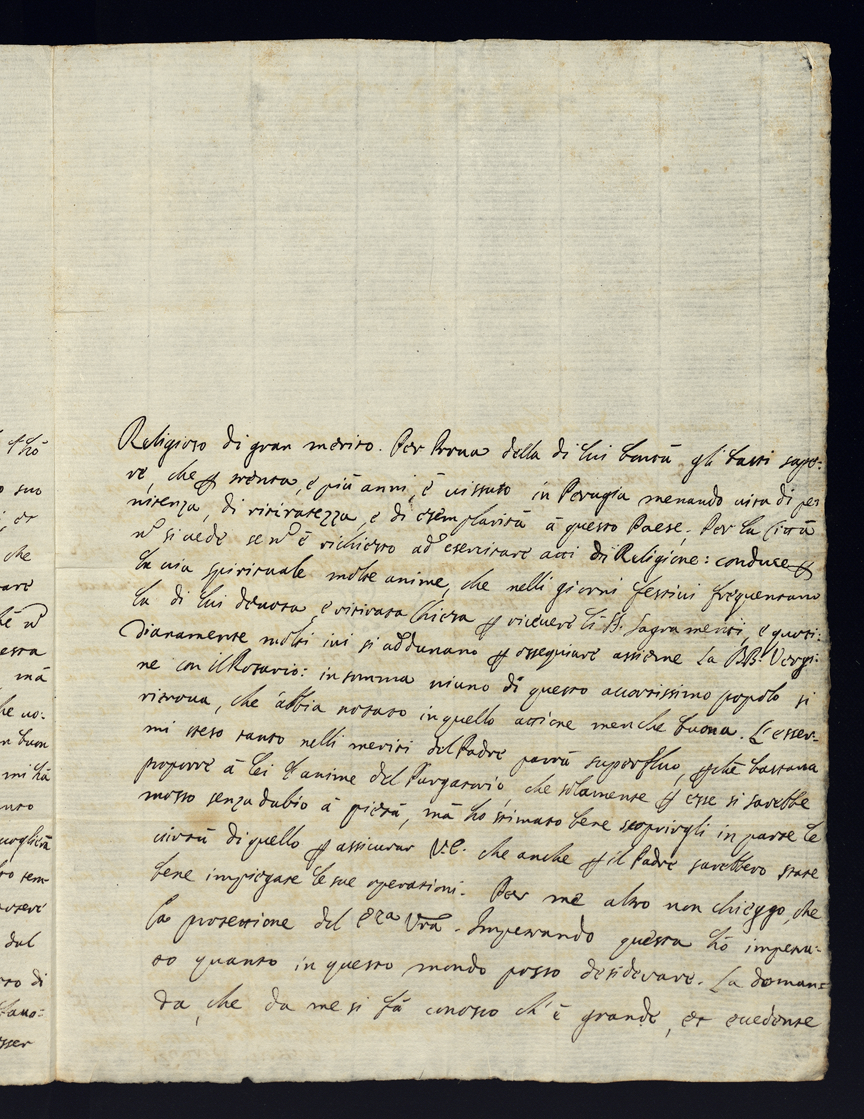 Religioso di gran merito. Per Prova della di lui bontà gli basti sape-
re, che p trenta, e più anni, è vissuto in Perugia menando vita di pe
nitenza, di ritiratezza, e di esemplarità à questo Paese; Per la Città
nō si vede se nō è richiesto ad esercitare atti di Religione: conduce p
la via spirituale molte anime, che nelli giorni festivi frequentano
la di lui devota, e ritirata Chiesa p ricevere li SS. Sagramenti, e quoti-
dianamente molti ivi si addunano p ossequiare assieme la BB. Vergi-
ne con il Rosario: in somma niuno di questo accortissimo popolo si
ritrova, che abbia notato in quello attione men che buona. L'esser-
mi steso tanto nelli meriti del Padre parrà superfluo, pche bastava
proporre à lei l'anime del Purgatorio che solamente p esse si sarebbe
mosso senza dubio à pietà, mà hò stimato bene scoprirgli in parte le
virtù di quello p assicurar V.E. che anche p il Padre sarebbero state
bene impiegate le sue operationi. Per me altro non chieggo, che
la protettione del Eza Vrā. Impetrando questa hò impetra-
to quanto in questo mondo posso desiderare. La doman-
da, che da me si fà conosco ch'è grande, et eccedente
che
mà
n buon
mi hà
dal
di